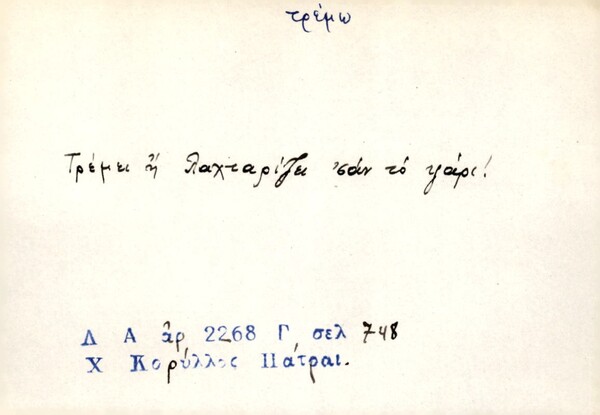 τρέμω
Τρέμει ἤ λαχταρίζει σάν τό ψάρι!
Λ Α ἀρ 2268 Γ σελ 748
Χ Κορύλλος Πάτραι.